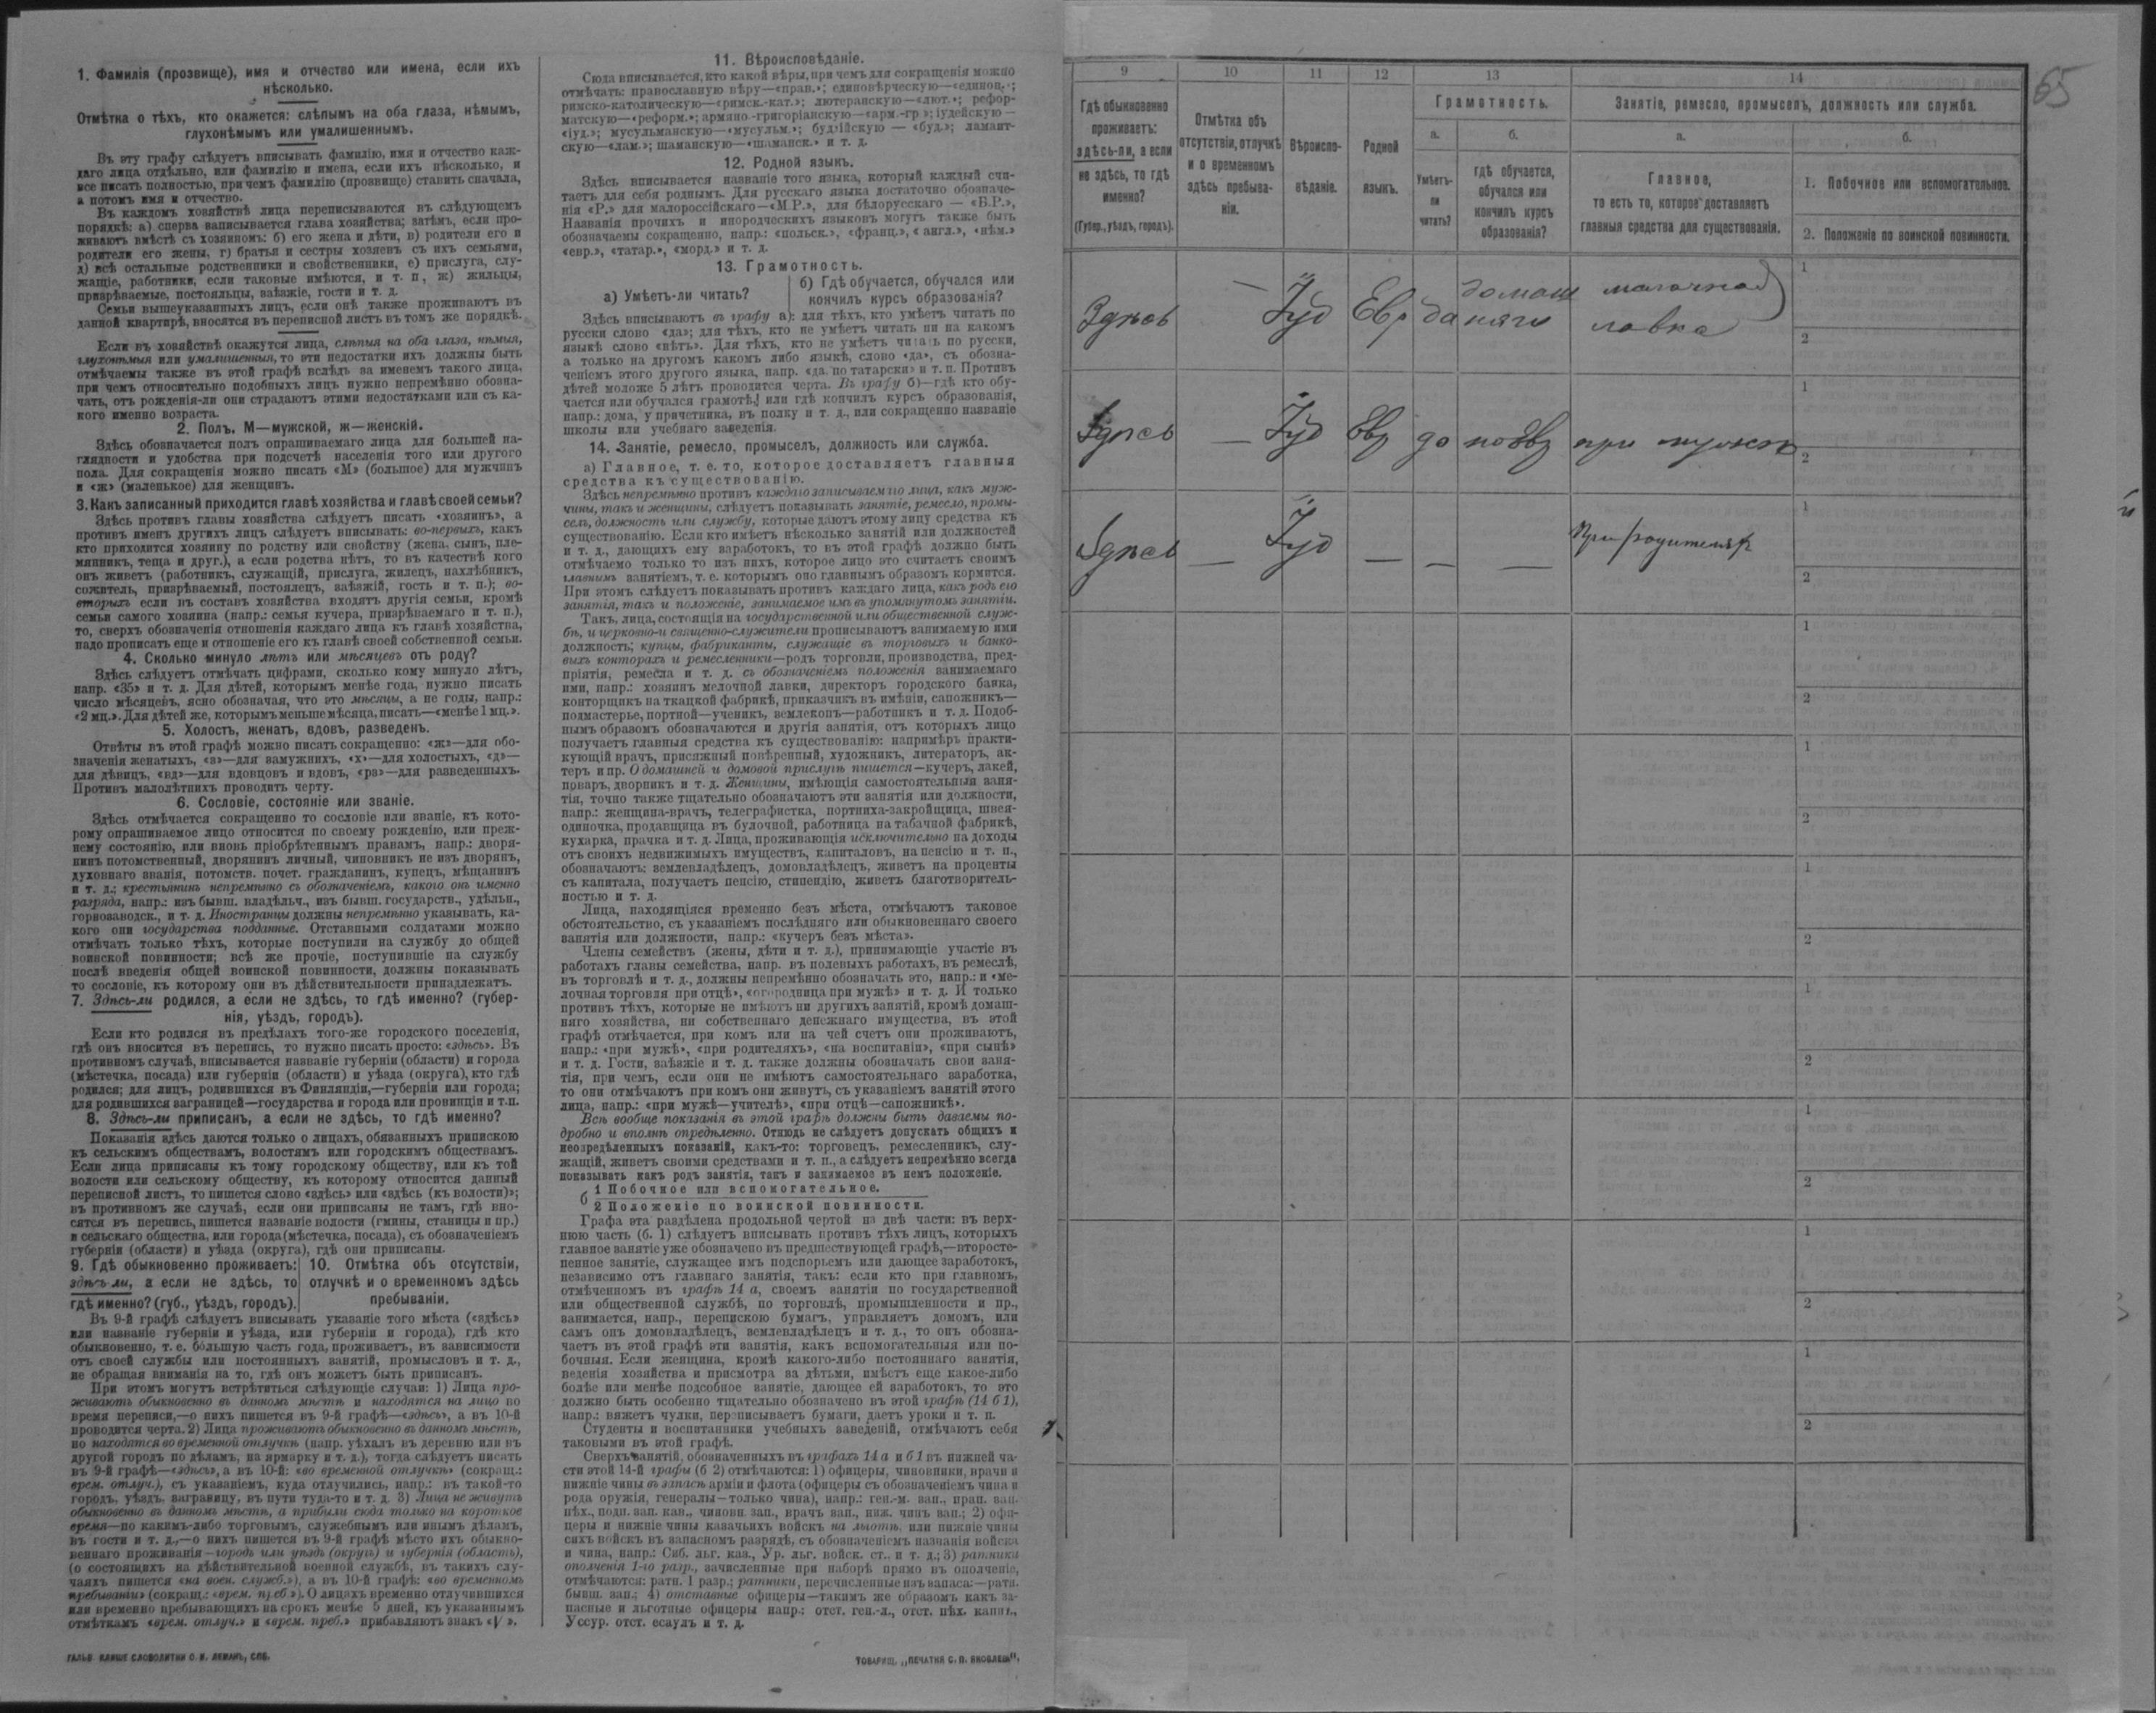 1. Фамилія (прозвище), имя и отчество или имена, если ихъ
нѣсколько.
Отмѣтка о тѣхъ, кто окажется: слѣпымъ на оба глаза, нѣмымъ,
глухонѣмымъ или умалишеннымъ.
Въ эту графу слѣдуетъ вписывать фамилію, имя и отчество каж-
даго лица отдѣльно, или фамилію и имена, если ихъ нѣсколько, и
все писать полностью, при чемъ фамилію (прозвище) ставить сначала,
а потомъ имя и отчество.
Въ каждомъ хозяйствѣ лица переписываются въ слѣдующемъ
порядкѣ: а) сперва записывается глава хозяйства; затѣмъ, если про-
живаютъ вмѣстѣ съ хозяиномъ: б) его жена и дѣти, в) родители его и
родители его жены, г) братья и сестры хозяевъ съ ихъ семьями,
д) всѣ остальные родственники и свойственники, е) прислуга, слу-
жащіе, работники, если таковые имѣются, и т. п, ж) жильцы,
призрѣваемые, постояльцы, заѣзжіе, гости и т. д.
Семьи вышеуказанныхъ лицъ, если онѣ также проживаютъ въ
данной квартирѣ, вносятся въ переписной листъ въ томъ же порядкѣ.
Если въ хозяйствѣ окажутся лица, слѣпыя на оба глаза, нѣмыя,
глухонѣмыя или умалишенныя, то эти недостатки ихъ должны быть
отмѣчаемы также въ этой графѣ вслѣдъ за именемъ такого лица,
при чемъ относительно подобныхъ лицъ нужно непремѣнно обозна-
чать, отъ рожденія-ли они страдаютъ этими недостатками или съ ка-
кого именно возраста.
2. Полъ. М—мужской, ж—женскій.
Здѣсь обозначается полъ опрашиваемаго лица для большей на-
глядности и удобства при подсчетѣ населенія того или другого
пола. Для сокращенія можно писать «М» (большое) для мужчинъ
и «ж» (маленькое) для женщинъ.
3. Какъ записанный приходится главѣ хозяйства и главѣ своей семьи?
Здѣсь противъ главы хозяйства слѣдуетъ писать «хозяинъ», а
противъ именъ другихъ лицъ слѣдуетъ вписывать: во-первыхъ, какъ
кто приходится хозяину по родству или свойству (жена, сынъ, пле-
мянникъ, теща и друг.), а если родства нѣтъ, то въ качествѣ кого
онъ живетъ (работникъ, служащій, прислуга, жилецъ, нахлѣбникъ,
сожитель, призрѣваемый, постоялецъ, заѣзжій, гость и т. п.); во-
вторыхъ если въ составъ хозяйства входятъ другія семьи, кромѣ
семьи самого хозяина (напр.: семья кучера, призрѣваемаго и т. п.),
то, сверхъ обозначенія отношенія каждаго лица къ главѣ хозяйства,
надо прописать еще и отношеніе его къ главѣ своей собственной семьи.
4. Сколько минуло лѣтъ или мѣсяцевъ отъ роду?
Здѣсь слѣдуетъ отмѣчать цифрами, сколько кому минуло лѣтъ,
напр. «35» и т. д. Для дѣтей, которымъ менѣе года, нужно писать
число мѣсяцевъ, ясно обозначая, что это мѣсяцы, а не годы, напр.:
«2 мц.». Для дѣтей же, которымъ меньше мѣсяца, писать—«менѣе 1 мц.».
5. Холостъ, женатъ, вдовъ, разведенъ.
Отвѣты въ этой графѣ можно писать сокращенно: «ж»—для обо-
значенія женатыхъ, «з»—для замужнихъ, «х»—для холостыхъ, «д»—
для дѣвицъ, «вд»—для вдовцовъ и вдовъ, «рз»—для разведенныхъ.
Противъ малолѣтнихъ проводить черту.
6. Сословіе, состояніе или званіе.
Здѣсь отмѣчается сокращенно то сословіе или званіе, къ кото-
рому опрашиваемое лицо относится по своему рожденію, или преж-
нему состоянію, или вновь пріобрѣтеннымъ правамъ, напр.: дворя-
нинъ потомственный, дворянинъ личный, чиновникъ не изъ дворянъ,
духовнаго званія, потомств. почет. гражданинъ, купецъ, мѣщанинъ
и т. д.; крестьянинъ непремѣнно съ обозначеніемъ, какого онъ именно
разряда, напр.: изъ бывш. владѣльч., изъ бывш. государств., удѣльн.,
горнозаводск., и т. д. Иностранцы должны непремѣнно указывать, ка-
кого они государства подданные. Отставными солдатами можно
отмѣчать только тѣхъ, которые поступили на службу до общей
воинской повинности; всѣ же прочіе, поступившіе на службу
послѣ введенія общей воинской повинности, должны показывать
то сословіе, къ которому они въ дѣйствительности принадлежатъ.
7. Здѣсь-ли родился, а если не здѣсь, то гдѣ именно? (губер-
нія, уѣздъ, городъ).
Если кто родился въ предѣлахъ того-же городского поселенія,
гдѣ онъ вносится въ перепись, то нужно писать просто: «здѣсь». Въ
противномъ случаѣ, вписывается названіе губерніи (области) и города
(мѣстечка, посада) или губерніи (области) и уѣзда (округа), кто гдѣ
родился; для лицъ, родившихся въ Финляндіи,—губерніи или города;
для родившихся заграницей—государства и города или провинціи и т.п.
8. Здѣсь-ли приписанъ, а если не здѣсь, то гдѣ именно?
Показанія здѣсь даются только о лицахъ, обязанныхъ припискою
къ сельскимъ обществамъ, волостямъ или городскимъ обществамъ.
Если лица приписаны къ тому городскому обществу, или къ той
волости или сельскому обществу, къ которому относится данный
переписной листъ, то пишется слово «здѣсь» или «здѣсь (къ волости)»;
въ противномъ же случаѣ, если они приписаны не тамъ, гдѣ вно-
сятся въ перепись, пишется названіе волости (гмины, станицы и пр.)
и сельскаго общества, или города (мѣстечка, посада), съ обозначеніемъ
губерніи (области) и уѣзда (округа), гдѣ они приписаны.
9. Гдѣ обыкновенно проживаетъ:
здѣсь-ли, а если не здѣсь, то
гдѣ именно? (губ., уѣздъ, городъ).
10. Отмѣтка объ отсутствіи,
отлучкѣ и о временномъ здѣсь
пребываніи.
Въ 9-й графѣ слѣдуетъ вписывать указаніе того мѣста («здѣсь»
или названіе губерніи и уѣзда, или губерніи и города), гдѣ кто
обыкновенно, т. е. бо́льшую часть года, проживаетъ, въ зависимости
отъ своей службы или постоянныхъ занятій, промысловъ и т. д.,
не обращая вниманія на то, гдѣ онъ можетъ быть приписанъ.
При этомъ могутъ встрѣтиться слѣдующіе случаи: 1) Лица про-
живаютъ обыкновенно въ данномъ мѣстѣ и находятся на лицо во
время переписи,—о нихъ пишется въ 9-й графѣ—«здѣсь», а въ 10-й
проводится черта. 2) Лица проживаютъ обыкновенно въ данномъ мѣстѣ,
но находятся во временной отлучкѣ (напр. уѣхалъ въ деревню или въ
другой городъ по дѣламъ, на ярмарку и т. д.), тогда слѣдуетъ писать
въ 9-й графѣ—«здѣсь», а въ 10-й: «во временной отлучкѣ» (сокращ.:
врем. отлуч.), съ указаніемъ, куда отлучились, напр.: въ такой-то
городъ, уѣздъ, заграницу, въ пути туда-то и т. д. 3) Лица не живутъ
обыкновенно въ данномъ мѣстѣ, а прибыли сюда только на короткое
время—по какимъ-либо торговымъ, служебнымъ или инымъ дѣламъ,
въ гости и т. д.,—о нихъ пишется въ 9-й графѣ мѣсто ихъ обыкно-
веннаго проживанія—городъ или уѣздъ (округъ) и губернія (область),
(о состоящихъ на дѣйствительной военной службѣ, въ такихъ слу-
чаяхъ пишется «на воен. служб.»), а въ 10-й графѣ: «во временномъ
пребываніи» (сокращ.: «врем. преб.»). О лицахъ временно отлучившихся
или временно пребывающихъ на срокъ менѣе 5 дней, къ указаннымъ
отмѣткамъ «врем. отлуч.» и «врем. преб.» прибавляютъ знакъ «V».
ГАЛЬВ. КЛИШЕ СЛОВОЛИТНИ О. И. ЛЕМАНЪ, СПБ.
11. Вѣроисповѣданіе.
Сюда вписывается, кто какой вѣры, при чемъ для сокращенія можно
отмѣчать: православную вѣру—«прав.»; единовѣрческую—«единов.»;
римско-католическую—«римск.-кат.»; лютеранскую—«лют.»; рефор-
матскую—«реформ.»; армяно-григоріанскую—«арм.-гр»; іудейскую—
«іуд.»; мусульманскую—«мусульм.»; буддійскую — «буд.»; ламаит-
скую—«лам.»; шаманскую—«шаманск.» и т. д.
12. Родной языкъ.
Здѣсь вписывается названіе того языка, который каждый счи-
таетъ для себя роднымъ. Для русскаго языка достаточно обозначе-
нія «Р.» для малороссійскаго—«М Р.», для бѣлорусскаго — «Б.Р.»,
Названія прочихъ и инородческихъ языковъ могутъ также быть
обозначаемы сокращенно, напр.: «польск.», «франц.», «англ.», «нѣм.»
«евр.», «татар.», «морд.» и т. д.
13. Грамотность.
а) Умѣетъ-ли читать?
б) Гдѣ обучается, обучался или
кончилъ курсъ образованія?
Здѣсь вписываютъ въ графу а): для тѣхъ, кто умѣетъ читать по
русски слово «да»; для тѣхъ, кто не умѣетъ читать ни на какомъ
языкѣ слово «нѣтъ». Для тѣхъ, кто не умѣетъ читать по русски,
а только на другомъ какомъ либо языкѣ, слово «да», съ обозна-
ченіемъ этого другого языка, напр. «да по татарски» и т. п. Противъ
дѣтей моложе 5 лѣтъ проводится черта. Въ графу б)—гдѣ кто обу-
чается или обучался грамотѣ, или гдѣ кончилъ курсъ образованія,
напр.: дома, у причетника, въ полку и т. д., или сокращенно названіе
школы или учебнаго заведенія.
14. Занятіе, ремесло, промыселъ, должность или служба.
а) Главное, т. е. то, которое доставляетъ главныя
средства къ существованію.
Здѣсь непремѣнно противъ каждаго записываемаго лица, какъ муж-
чины, такъ и женщины, слѣдуетъ показывать занятіе, ремесло, промы-
селъ, должность или службу, которые даютъ этому лицу средства къ
существованію. Если кто имѣетъ нѣсколько занятій или должностей
и т. д., дающихъ ему заработокъ, то въ этой графѣ должно быть
отмѣчаемо только то изъ нихъ, которое лицо это считаетъ своимъ
главнымъ занятіемъ, т. е. которымъ оно главнымъ образомъ кормится.
При этомъ слѣдуетъ показывать противъ каждаго лица, какъ родъ его
занятія, такъ и положеніе, занимаемое имъ въ упомянутомъ занятіи.
Такъ, лица, состоящія на государственной или общественной служ-
бѣ, и церковно-и священно-служители прописываютъ занимаемую ими
должность; купцы, фабриканты, служащіе въ торговыхъ и банко-
выхъ конторахъ и ремесленники—родъ торговли, производства, пред-
пріятія, ремесла и т. д. съ обозначеніемъ положенія занимаемаго
ими, напр.: хозяинъ мелочной лавки, директоръ городского банка,
конторщикъ на ткацкой фабрикѣ, приказчикъ въ имѣніи, сапожникъ—
подмастерье, портной—ученикъ, землекопъ—работникъ и т. д. Подоб-
нымъ образомъ обозначаются и другія занятія, отъ которыхъ лицо
получаетъ главныя средства къ существованію: напримѣръ практи-
кующій врачъ, присяжный повѣренный, художникъ, литераторъ, ак-
теръ и пр. О домашней и домовой прислугѣ пишется—кучеръ, лакей,
поваръ, дворникъ и т. д. Женщины, имѣющія самостоятельныя заня-
тія, точно также тщательно обозначаютъ эти занятія или должности,
напр.: женщина-врачъ, телеграфистка, портниха-закройщица, швея-
одиночка, продавщица въ булочной, работница на табачной фабрикѣ,
кухарка, прачка и т. д. Лица, проживающія исключительно на доходы
отъ своихъ недвижимыхъ имуществъ, капиталовъ, на пенсію и т. п.,
обозначаютъ: землевладѣлецъ, домовладѣлецъ, живетъ на проценты
съ капитала, получаетъ пенсію, стипендію, живетъ благотворитель-
ностью и т. д.
Лица, находящіяся временно безъ мѣста, отмѣчаютъ таковое
обстоятельство, съ указаніемъ послѣдняго или обыкновеннаго своего
занятія или должности, напр.: «кучеръ безъ мѣста».
Члены семействъ (жены, дѣти и т. д.), принимающіе участіе въ
работахъ главы семейства, напр. въ полевыхъ работахъ, въ ремеслѣ,
въ торговлѣ и т. д., должны непремѣнно обозначать это, напр.: и «ме-
лочная торговля при отцѣ», «огородница при мужѣ» и т. д. И только
противъ тѣхъ, которые не имѣютъ ни другихъ занятій, кромѣ домаш-
няго хозяйства, ни собственнаго денежнаго имущества, въ этой
графѣ отмѣчается, при комъ или на чей счетъ они проживаютъ,
напр.: «при мужѣ», «при родителяхъ», «на воспитаніи», «при сынѣ»
и т. д. Гости, заѣзжіе и т. д. также должны обозначать свои заня-
тія, при чемъ, если они не имѣютъ самостоятельнаго заработка,
то они отмѣчаютъ при комъ они живутъ, съ указаніемъ занятій этого
лица, напр.: «при мужѣ—учителѣ», «при отцѣ—сапожникѣ».
Всѣ вообще показанія въ этой графѣ должны быть даваемы по-
дробно и вполнѣ опредѣленно. Отнюдь не слѣдуетъ допускать общихъ и
неопредѣленныхъ показаній, какъ-то: торговецъ, ремесленникъ, слу-
жащій, живетъ своими средствами и т. п., а слѣдуетъ непремѣнно всегда
показывать какъ родъ занятія, такъ и занимаемое въ немъ положеніе.
б 1 Побочное или вспомогательное.
2 Положеніе по воинской повинности.
Графа эта раздѣлена продольной чертой на двѣ части: въ верх-
нюю часть (б. 1) слѣдуетъ вписывать противъ тѣхъ лицъ, которыхъ
главное занятіе уже обозначено въ предшествующей графѣ,—второсте-
пенное занятіе, служащее имъ подспорьемъ или дающее заработокъ,
независимо отъ главнаго занятія, такъ: если кто при главномъ,
отмѣченномъ въ графѣ 14 а, своемъ занятіи по государственной
или общественной службѣ, по торговлѣ, промышленности и пр.,
занимается, напр., перепискою бумагъ, управляетъ домомъ, или
самъ онъ домовладѣлецъ, землевладѣлецъ и т. д., то онъ обозна-
чаетъ въ этой графѣ эти занятія, какъ вспомогательныя или по-
бочныя. Если женщина, кромѣ какого-либо постояннаго занятія,
веденія хозяйства и присмотра за дѣтьми, имѣетъ еще какое-либо
болѣе или менѣе подсобное занятіе, дающее ей заработокъ, то это
должно быть особенно тщательно обозначено въ этой графѣ (14 б 1),
напр.: вяжетъ чулки, переписываетъ бумаги, даетъ уроки и т. п.
Студенты и воспитанники учебныхъ заведеній, отмѣчаютъ себя
таковыми въ этой графѣ.
Сверхъ занятій, обозначенныхъ въ графахъ 14 а и б 1 въ нижней ча-
сти этой 14-й графы (б 2) отмѣчаются: 1) офицеры, чиновники, врачи и
нижніе чины въ запасѣ арміи и флота (офицеры съ обозначеніемъ чина и
рода оружія, генералы—только чина), напр.: ген.-м. зап., прап. зап.
пѣх., подп. зап. кав., чиновн. зап., врачъ зап., ниж. чинъ зап.; 2) офи-
церы и нижніе чины казачьихъ войскъ на льготѣ, или нижніе чины
сихъ войскъ въ запасномъ разрядѣ, съ обозначеніемъ названія войска
и чина, напр.: Сиб. льг. каз., Ур. льг. войск. ст.. и т. д.; 3) ратники
ополченія 1-го разр., зачисленные при наборѣ прямо въ ополченіе,
отмѣчаются: ратн. 1 разр.; ратники, перечисленные изъ запаса:—ратн.
бывш. зап.; 4) отставные офицеры—такимъ же образомъ какъ за-
пасные и льготные офицеры напр.: отст. ген.-л., отст. пѣх. капит.,
Уссур. отст. есаулъ и т. д.
ТОВАРИЩ. „ПЕЧАТНЯ С. П. ЯКОВЛЕВА".
65
9 10 11 12 13 14
Гдѣ обыкновенно
проживаетъ:
здѣсь-ли, а если
не здѣсь, то гдѣ
именно?
(Губер., уѣздъ, городъ).
Отмѣтка объ
отсутствіи, отлучкѣ
и о временномъ
здѣсь пребыва-
ніи.
Вѣроиспо-
вѣданіе.
Родной
языкъ.
Грамотность.
а.
Умѣетъ-
ли
читать?
б.
гдѣ обучается,
обучался или
кончилъ курсъ
образованія?
Занятіе, ремесло, промыселъ, должность или служба.
а.
Главное,
то есть то, которое доставляетъ
главныя средства для существованія.
б.
1. Побочное или вспомогательное.
2. Положеніе по воинской повинности.
Здѣсь — Іуд Евр да домаш няго молочная лавка
1
2
Здѣсь — Іуд Евр да по Евр при мужѣ
1
2
Здѣсь — Іуд — — — При родителях
1
2
1
2
1
2
1
2
1
2
1
2
1
2
1
2